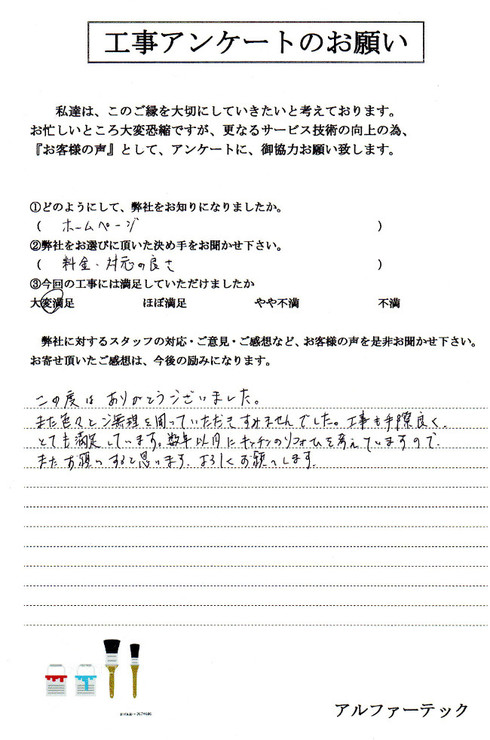 工事アンケートのお願い
私達は、このご縁を大切にしていきたいと考えております。
お忙しいところ大変恐縮ですが、更なるサービス技術の向上の為、
『お客様の声』として、アンケートに、御協力お願い致します。
①どのようにして、弊社をお知りになりましたか。
( ホームページ )
②弊社をお選びに頂いた決め手をお聞かせ下さい。
( 料金・対応の良さ )
③今回の工事には満足していただけましたか
大変満足 ほぼ満足 やや不満 不満
弊社に対するスタッフの対応・ご意見・ご感想など、お客様の声を是非お聞かせ下さい。
お寄せ頂いたご感想は、今後の励みになります。
この度は ありがとうございました。
また色々とご無理を聞いていただきすみませんでした。工事も手際良く、
とても満足しています。数年以内にキッチンのリフォームを考えていますので、
またお願いすると思います。よろしくお願いします。
アルファーテック